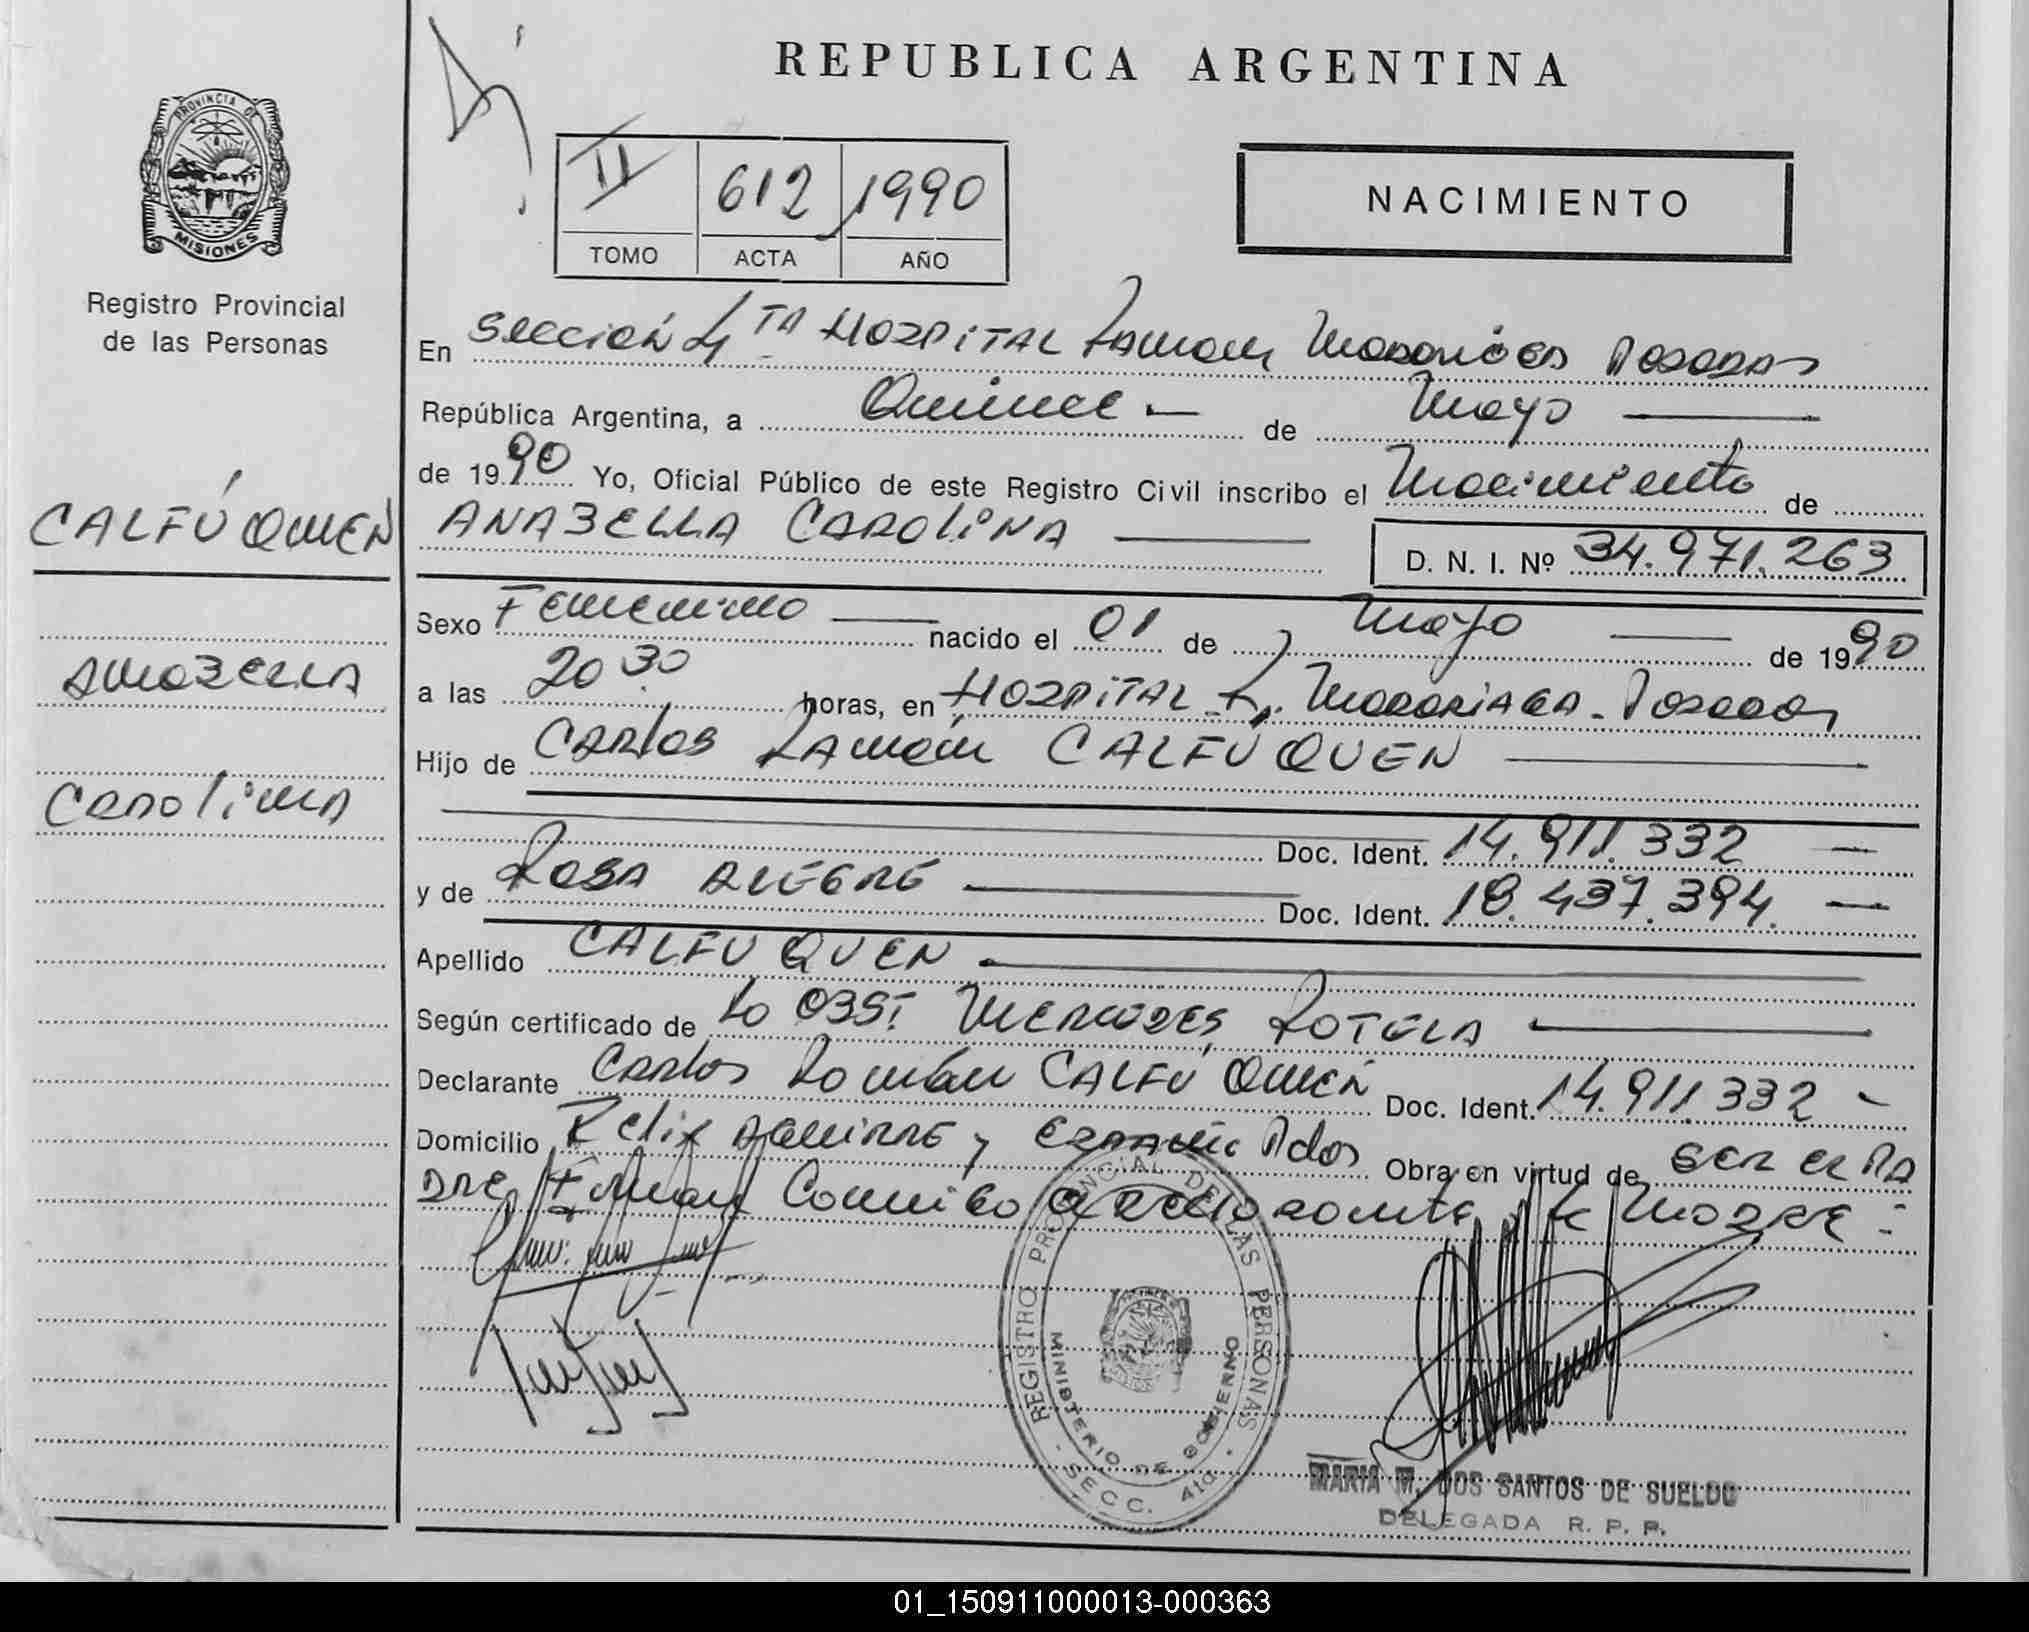 REPUBLICA ARGENTINA
PROVINCIA DE
MISIONES
Registro Provincial
de las Personas
II 612 1990
TOMO ACTA AÑO
NACIMIENTO
En Sección 4TA Hospital Ramón Madariaga Posadas
República Argentina, a Quince de Mayo
de 1990 Yo, Oficial Público de este Registro Civil inscribo el Nacimiento de
CALFÚ QUEN
ANABELLA CAROLINA
D. N. I. Nº 34.971.263
Sexo Femenino nacido el 01 de Mayo de 1990
Anabella
a las 20 30 horas, en Hospital R. Madariaga - Posadas
Hijo de Carlos Ramón CALFÚ QUEN
Carolina
Doc. Ident. 14.911.332
y de Rosa Alegre Doc. Ident. 18.437.394
Apellido CALFU QUEN
Según certificado de la Obst. Mercedes Rotela
Declarante Carlos Ramón CALFÚ QUEN Doc. Ident. 14.911.332
Domicilio Felix Aguirre y Obra en virtud de ser el pa
dre Firman la madre
REGISTRO PROVINCIAL DE LAS PERSONAS
MINISTERIO DE GOBIERNO
SECC. 4ta
MARIA M. DOS SANTOS DE SUELDO
DELEGADA R. P. P.
01_150911000013-000363